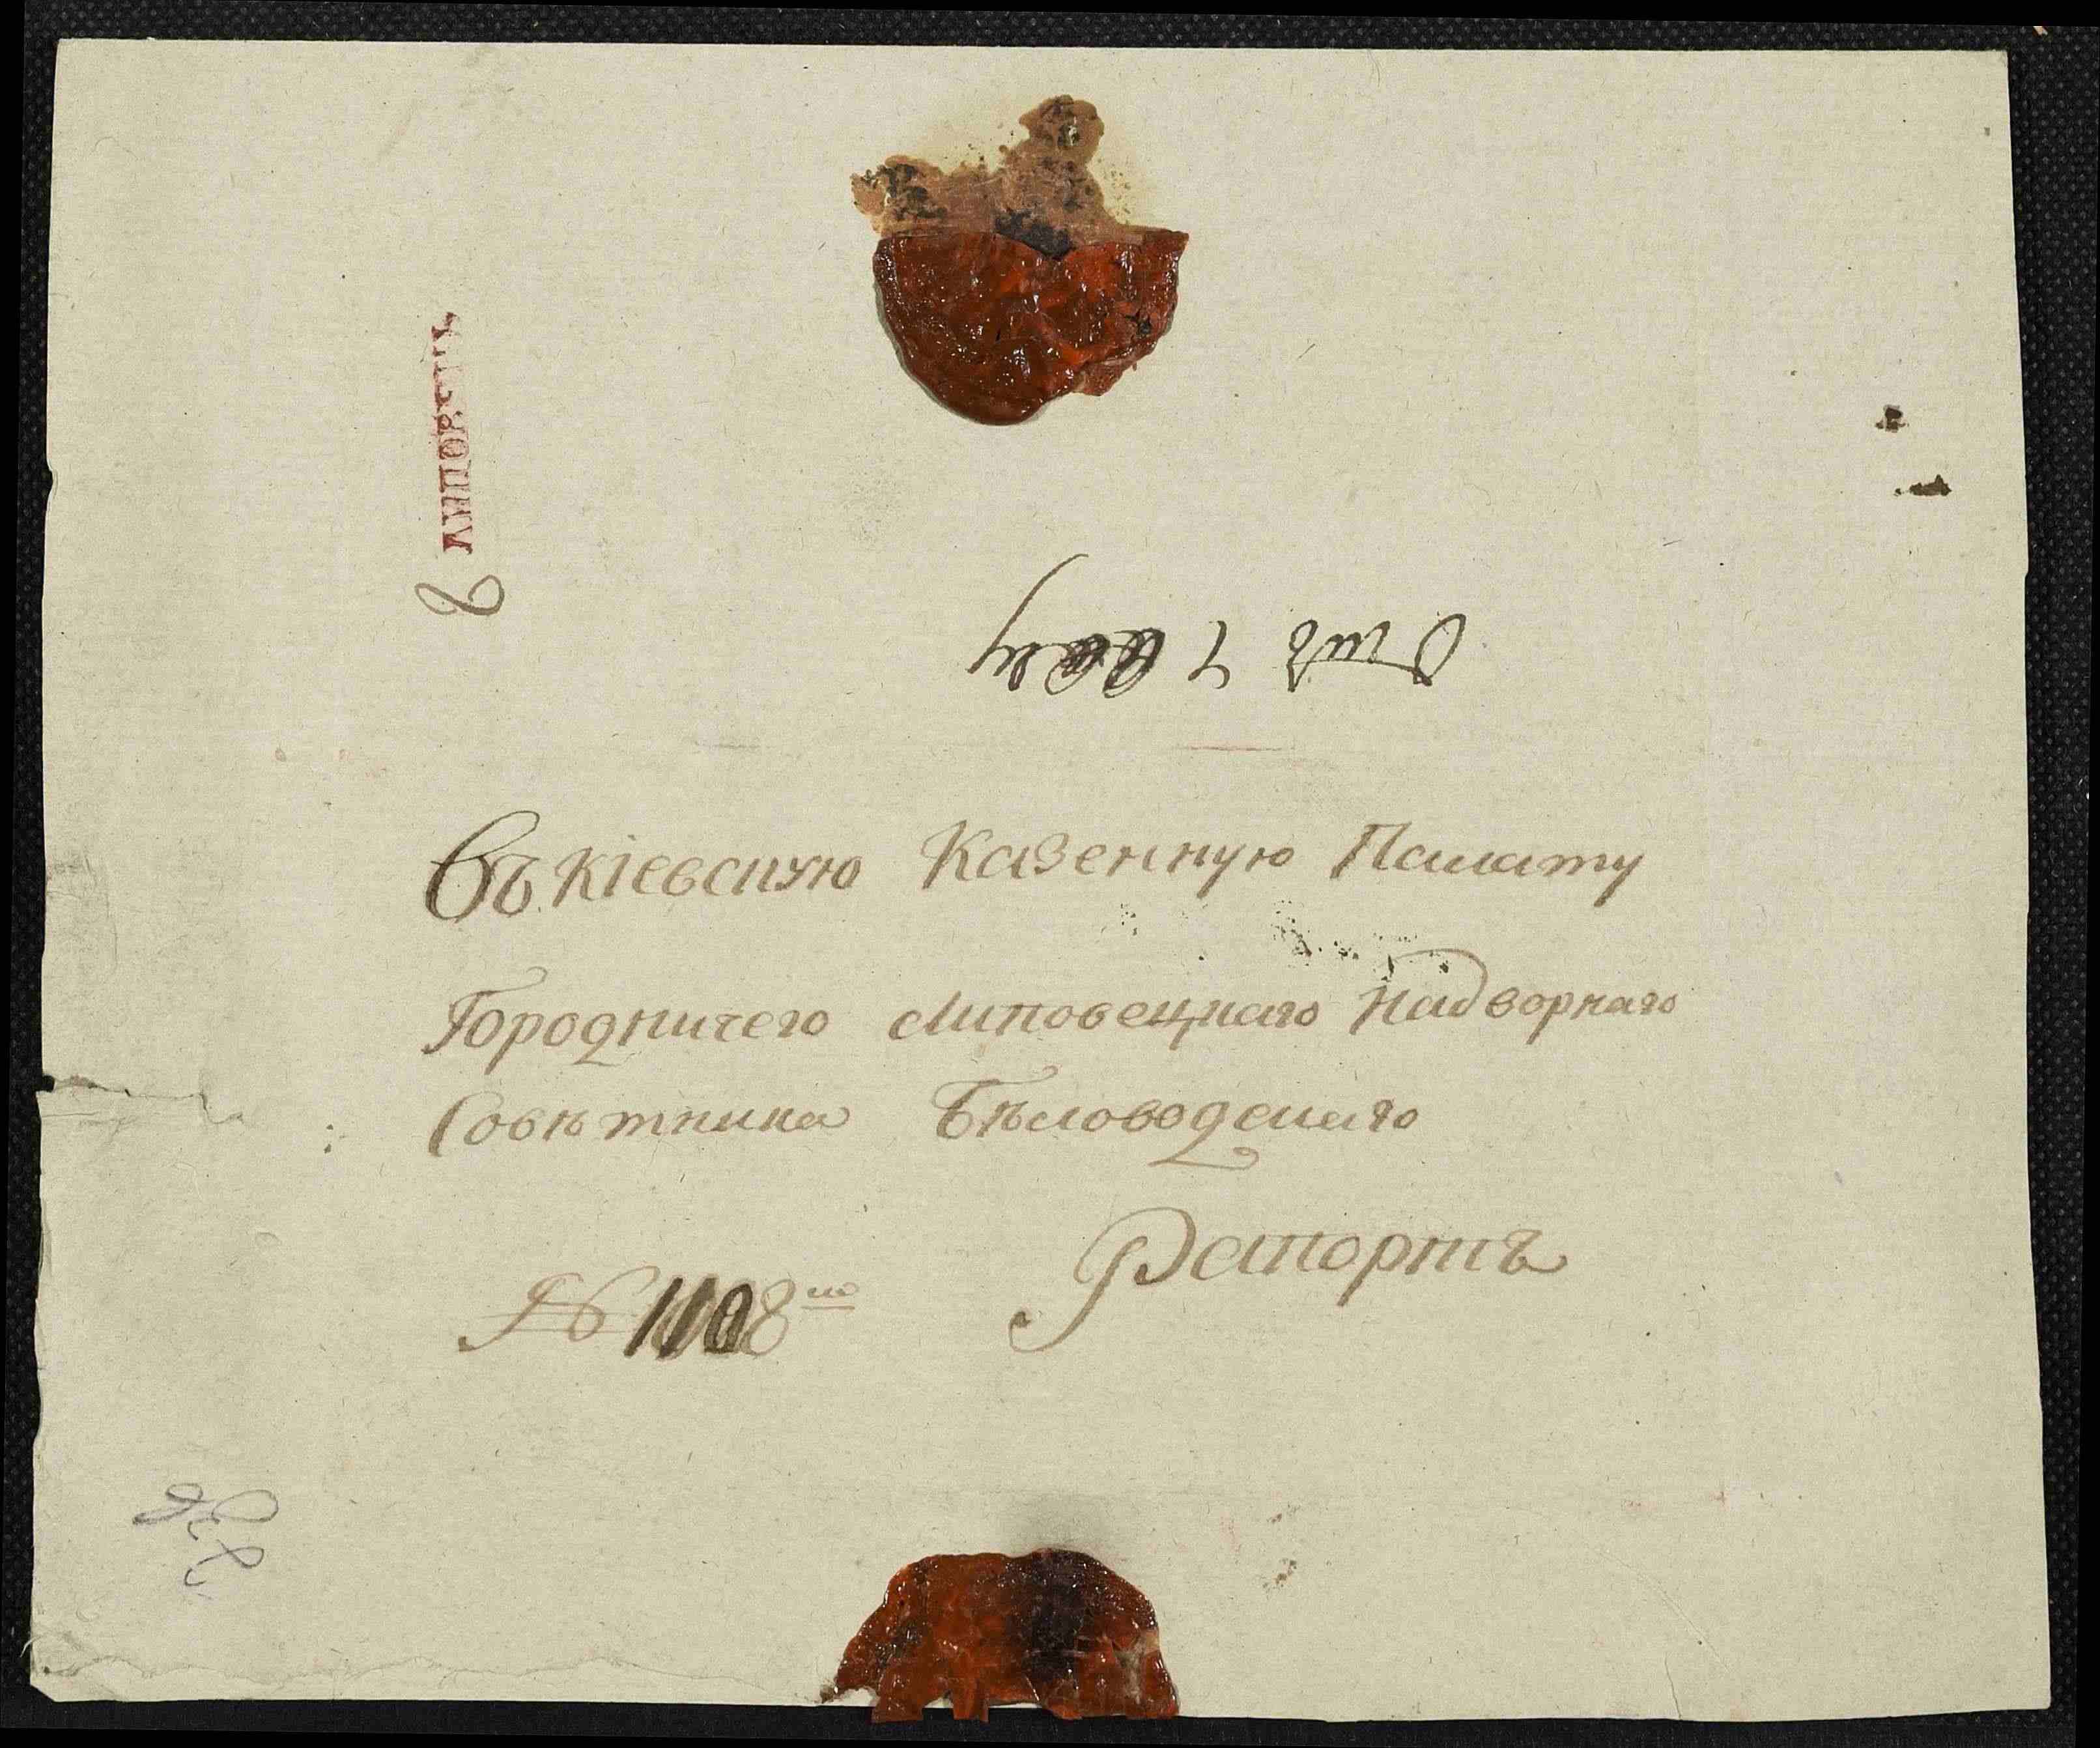 ЛИПОВЕЦЪ
Въ Кіевскую Казенную Палату
Городничего Липовецкаго Надворнаго
Совѣтника Бѣловодскаго
Рапортъ
№ 1108